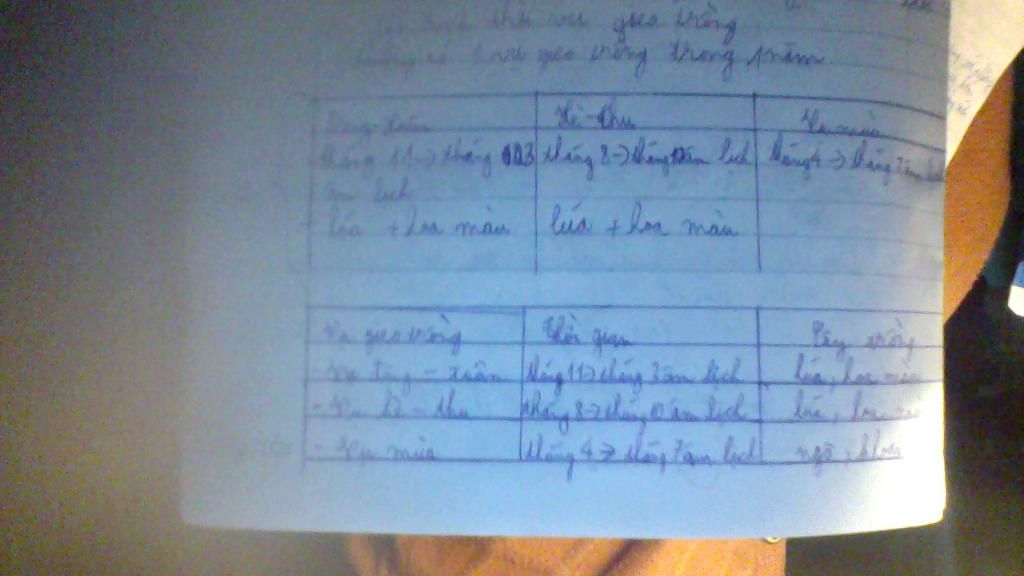 thời vụ gieo trồng
vụ gieo trồng trong 1 năm
Đông-Xuân Hè-Thu Vụ mùa
tháng 11 -> tháng 3 tháng 8 -> tháng 10 âm lịch tháng 4 -> tháng 7 âm
âm lịch
- lúa + hoa màu lúa + hoa màu
Vụ gieo trồng Thời gian Cây trồng
- Vụ đông - xuân tháng 11 -> tháng 3 âm lịch lúa, hoa màu
- Vụ hè - thu tháng 8 -> tháng 10 âm lịch lúa, hoa màu
- Vụ mùa tháng 4 -> tháng 7 âm lịch ngô, khoai